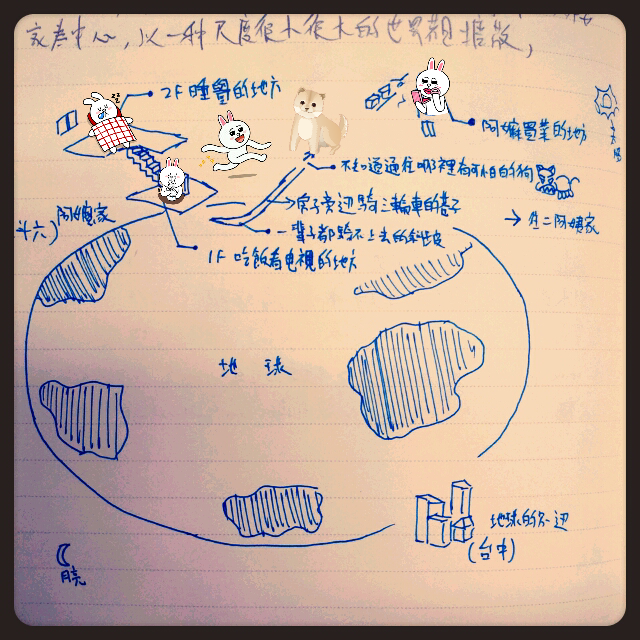 家為中心,以一種尺度很小很大的世界觀擴散,
2F 睡覺的地方
阿嬤買菜的地方
太陽
不知道通往哪裡有可怕的狗
房子旁邊騎三輪車的巷子
→ 住二阿姨家
斗六) 阿嬤家
一輩子都騎不上去的斜坡
1F 吃飯看電視的地方
地球
地球的外邊
(台中)
月亮